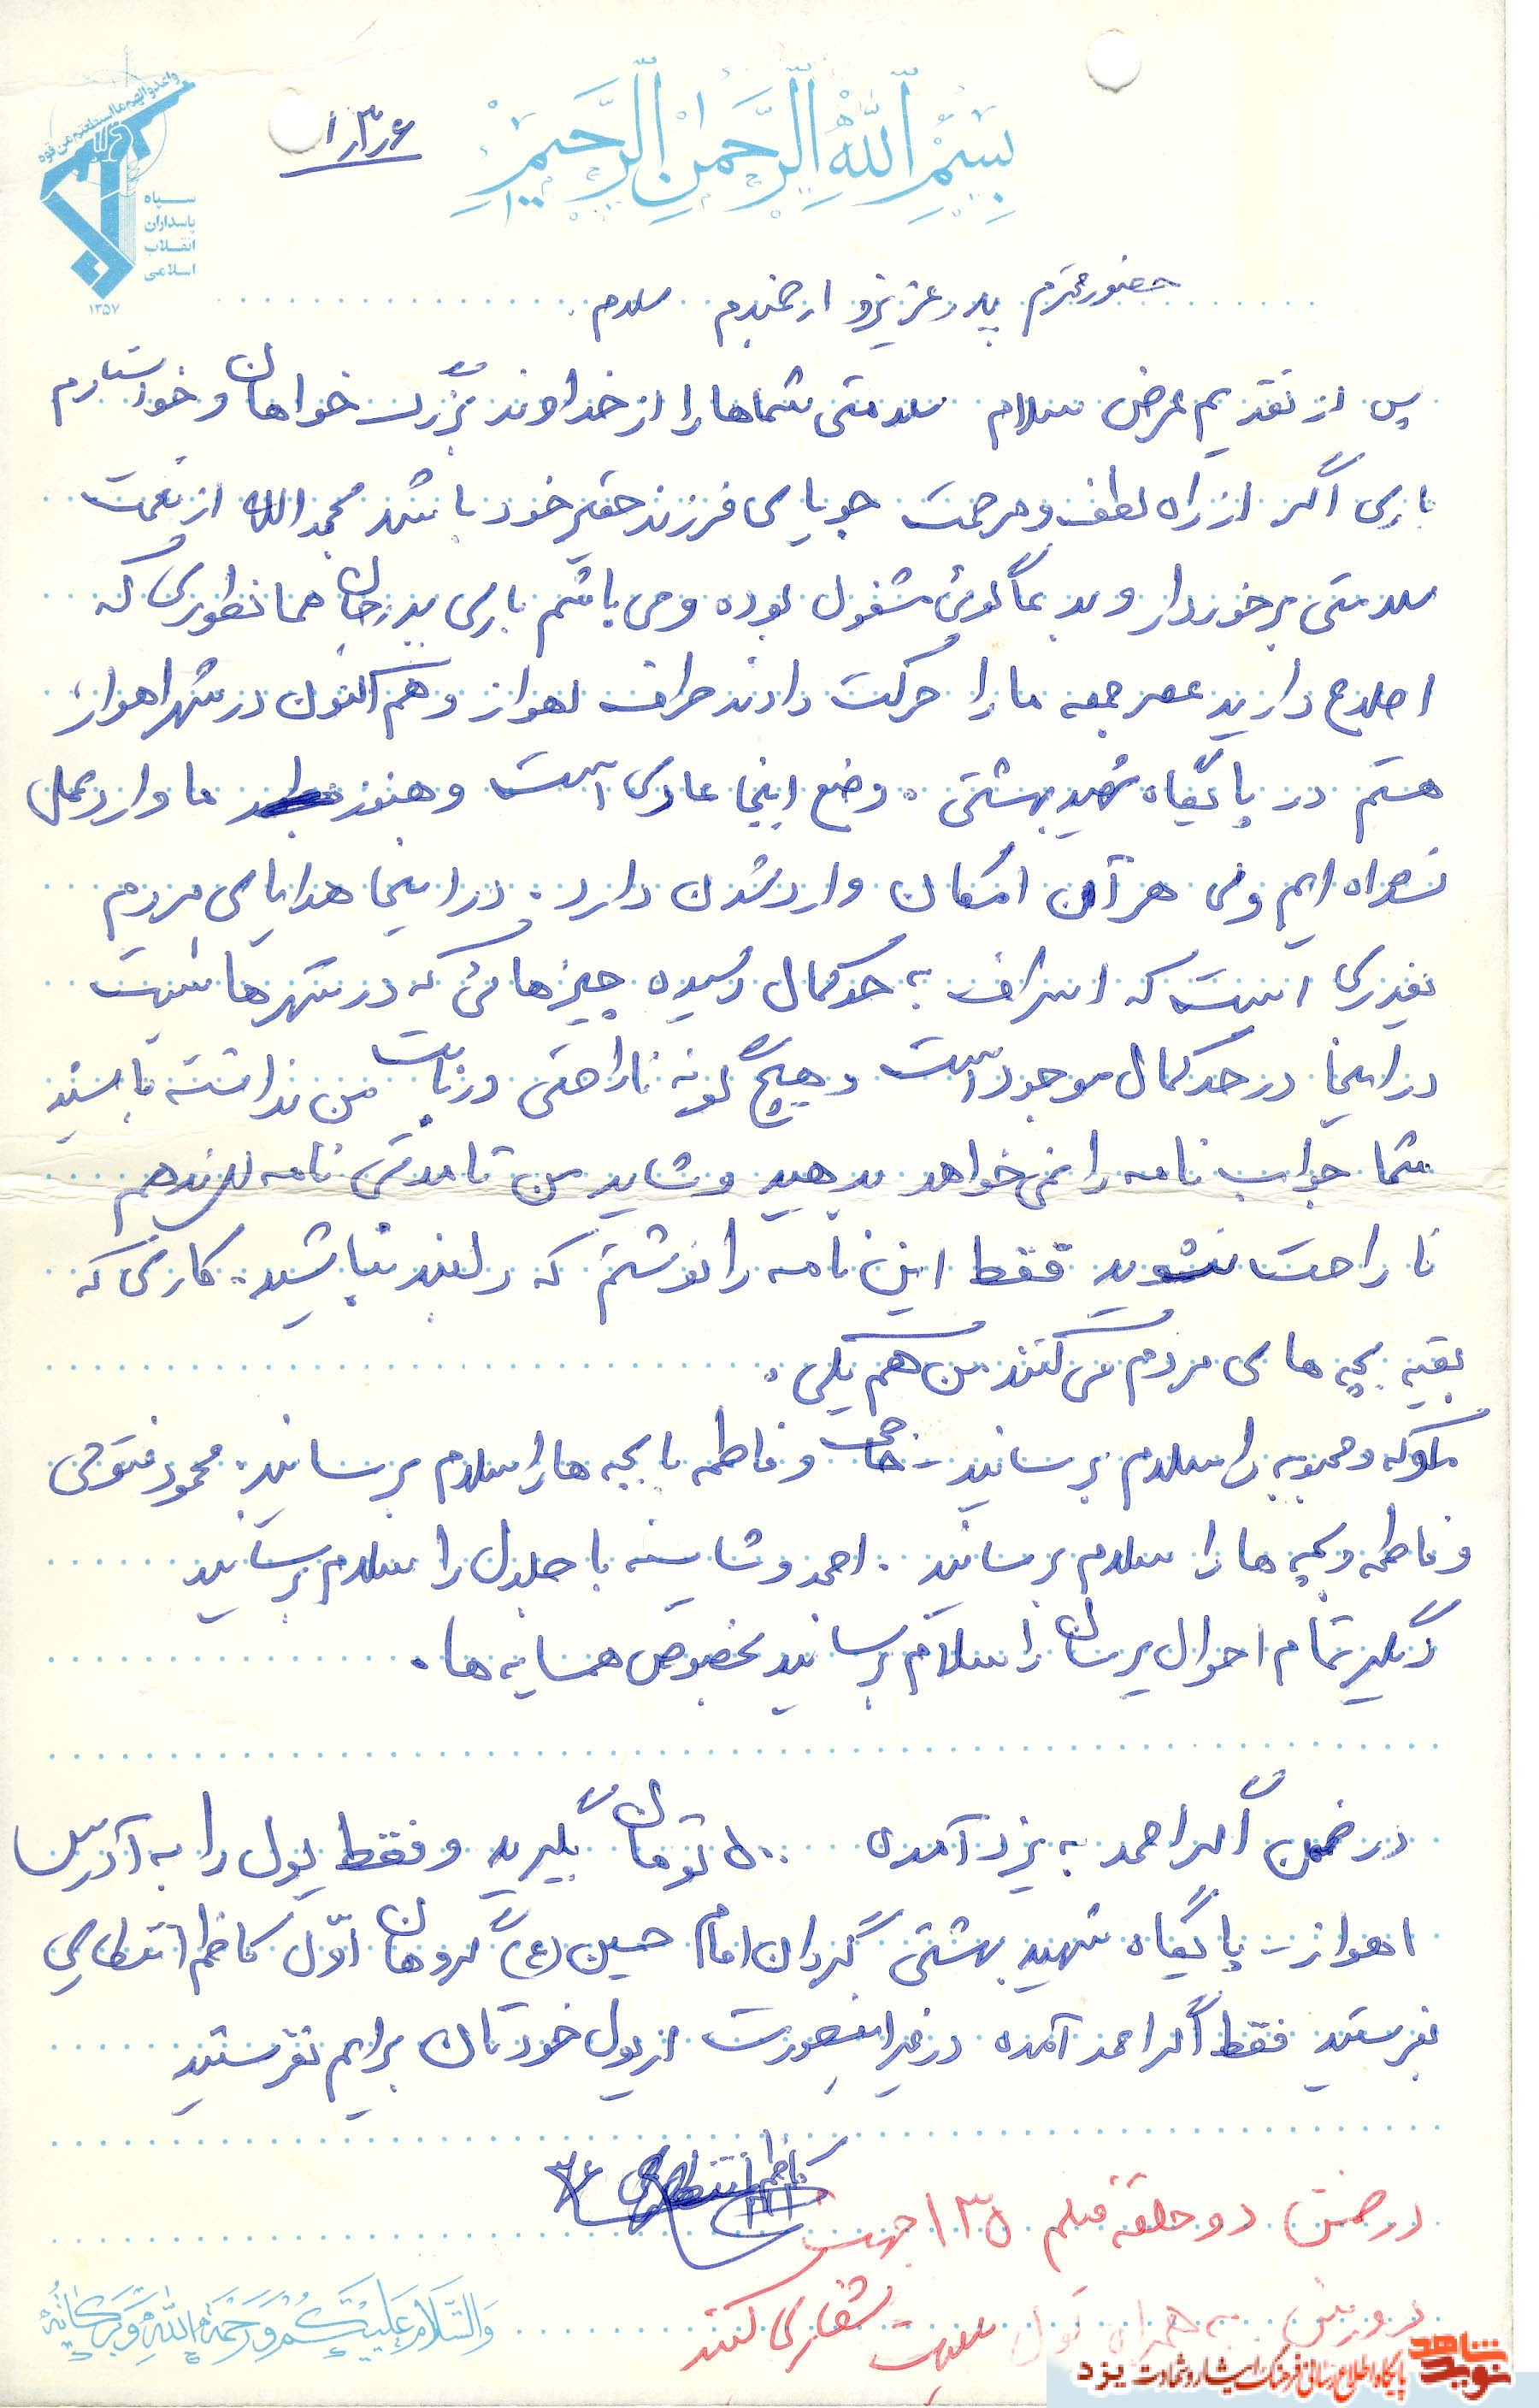 بسم الله الرحمن الرحیم
واعدوا لهم ما استطعتم من قوة
سپاه
پاسداران
انقلاب
اسلامی
۱۳۵۷
حضور محترم پدر عزیز و ارجمندم سلام.
پس از تقدیم عرض سلام سلامتی شماها را از خداوند بزرگ خواهان و خواستارم
باری اگر از راه لطف و مرحمت جویای فرزند حقیر خود باشد بحمدالله از نعمت
سلامتی برخوردار و بدعاگوئی مشغول بوده و می باشم باری پدرجان همانطوری که
اطلاع دارید عصر جمعه ما را حرکت دادند طرف اهواز و هم اکنون در شهر اهواز،
هستم در پایگاه شهید بهشتی. وضع اینجا عادی است و هنوز ما وارد عمل
نشده ایم ولی هر آن امکان وارد شدن دارد. در اینجا هدایای مردم
بقدری است که اسراف به حد کمال رسیده چیزهائی که در شهرها نیست
در اینجا در حد کمال موجود است و هیچ گونه ناراحتی از بابت من نداشته باشید
شما جواب نامه را نمی خواهد بدهید و شاید من تا مدتی نامه ندهم
ناراحت نشوید فقط این نامه را نوشتم که دلبند نباشید. کاری که
بقیه بچه های مردم می کنند من هم یکی.
ملوکه و محبوبه را سلام برسانید - حاجی و فاطمه با بچه ها را سلام برسانید. محمود فتوحی
و فاطمه و بچه ها را سلام برسانید. احمد و شایسته با جلال را سلام برسانید
دگیر تمام احوال پرسان را سلام برسانید بخصوص همسایه ها.
در ضمن اگر احمد به یزد آمده ۵۰۰ تومان بگیرید و فقط پول را به آدرس
اهواز - پایگاه شهید بهشتی گردان امام حسین (ع) گروهان اول کاظم انتظاری
بفرستید فقط اگر احمد آمده در غیر اینصورت از پول خودتان برایم نفرستید
کاظم انتظاری
در ضمن دو حلقه فیلم ۱۳۵ جهت
دوربین به همراه پول سفارشی کنید
والسلام علیکم ورحمة الله وبرکاته
نوید شاهد
پایگاه اطلاع رسانی فرهنگ ایثار و شهادت یزد